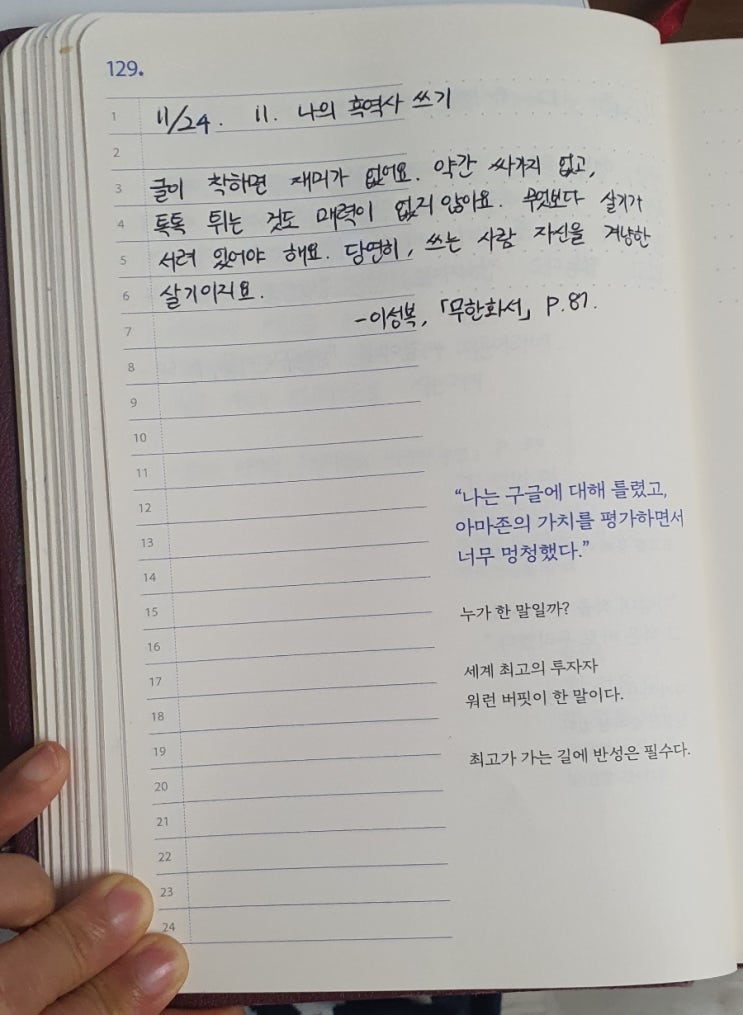 129.
1 11/24. 11. 나의 흑역사 쓰기
2
3 글이 착하면 재미가 없어요. 약간 싸가지 없고,
4 톡톡 튀는 것도 매력이 없지 않아요. 무엇보다 살기가
5 서려 있어야 해요. 당연히, 쓰는 사람 자신을 겨냥한
6 살기이지요.
7 -이성복, 「무한화서」 P.87.
8
9
10
11
12 “나는 구글에 대해 틀렸고,
아마존의 가치를 평가하면서
13 너무 멍청했다.”
14
15 누가 한 말일까?
16
17 세계 최고의 투자자
워런 버핏이 한 말이다.
18
19 최고가 가는 길에 반성은 필수다.
20
21
22
23
24